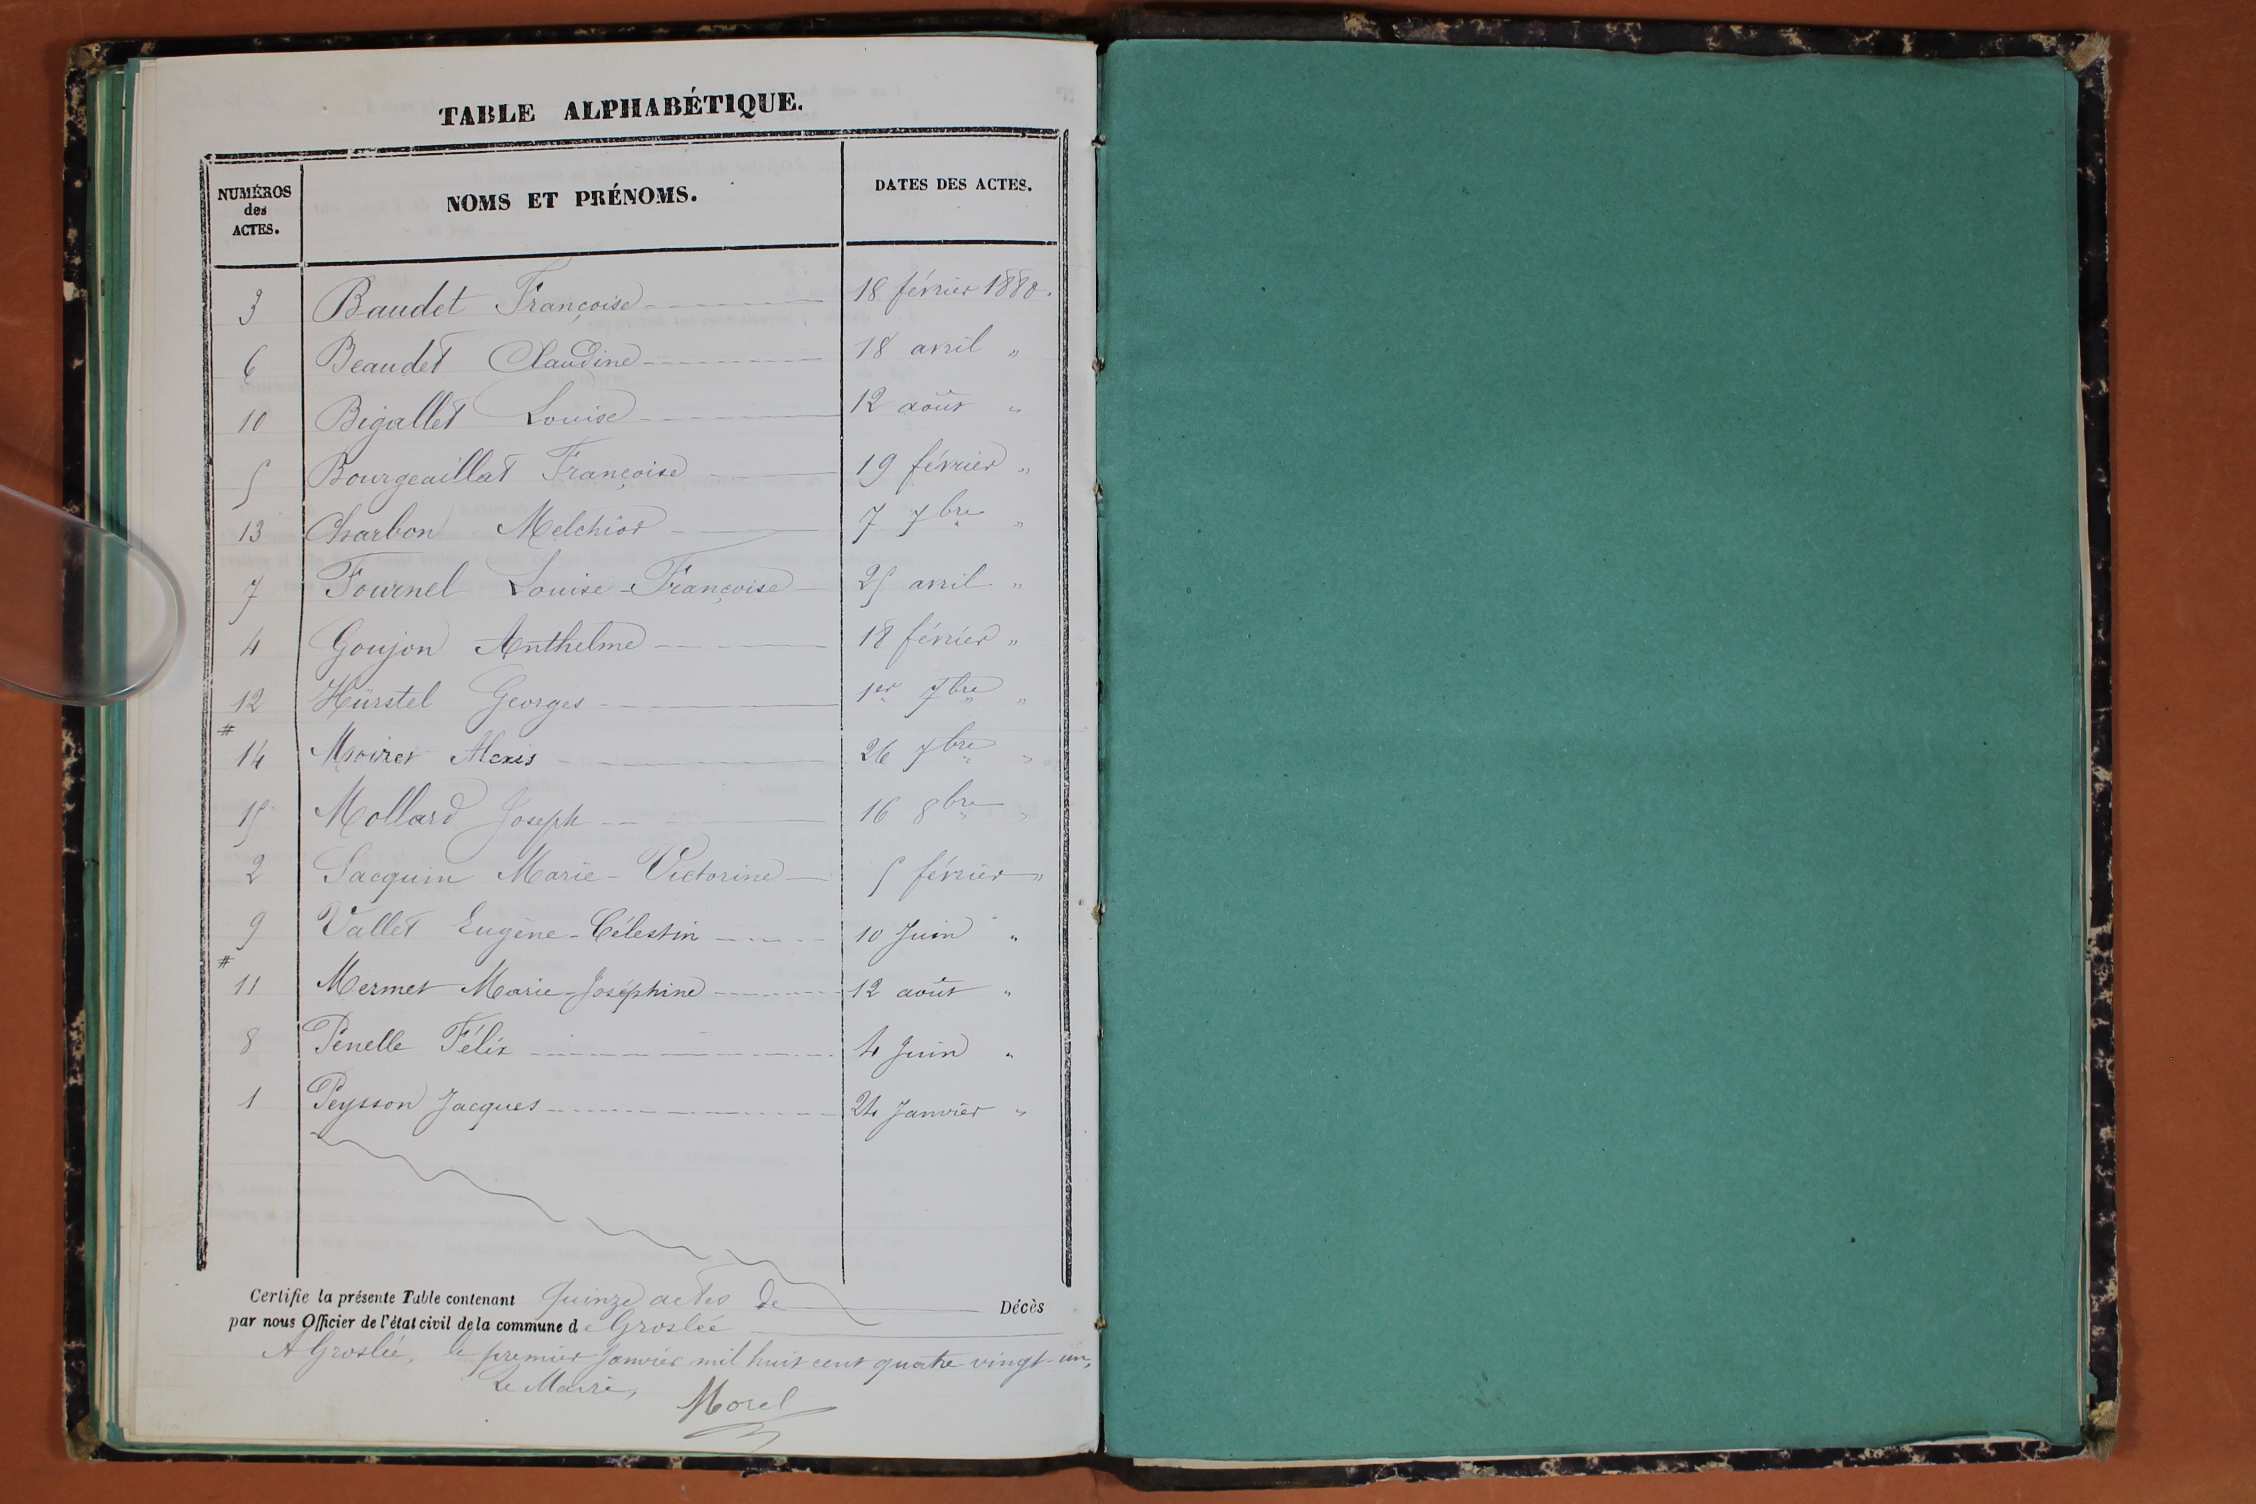 TABLE ALPHABÉTIQUE.
NUMÉROS des ACTES. NOMS ET PRÉNOMS. DATES DES ACTES.
3 Baudet Françoise 18 février 1880.
6 Beaudet Claudine 18 avril "
10 Bigallet Louise 12 août "
5 Bourgeaillat Françoise 19 février "
13 Charbon Melchior 7 7bre "
7 Fournel Louise-Françoise 25 avril "
4 Goujon Anthelme 18 février "
12 Hürstel Georges 1er 7bre "
# 14 Alexis 26 7bre "
15 Mollard Joseph 16 8bre "
2 Sacquin Marie-Victorine 5 février "
9 Vallet Eugène-Célestin 10 Juin "
# 11 Mermet Marie-Joséphine 12 août "
8 Penelle Félix 4 Juin "
1 Peysson Jacques 24 Janvier "
Certifie la présente Table contenant Quinze actes de Décès
par nous Officier de l'état civil de la commune de Groslée
A Groslée, le premier Janvier mil huit cent quatre vingt-un,
Le Maire,
Morel